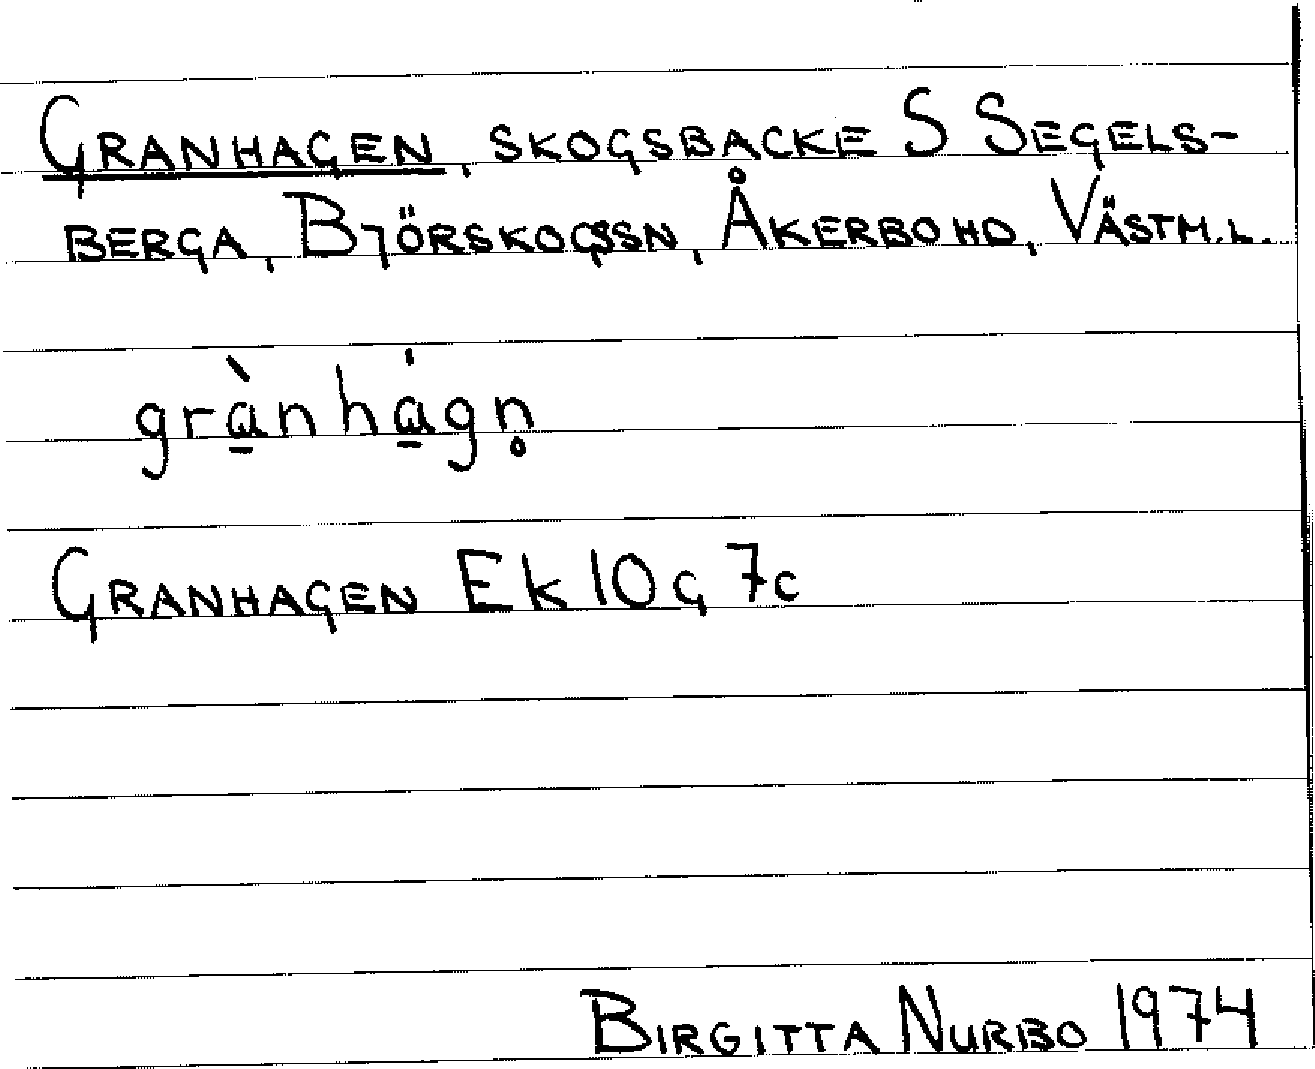 GRANHAGEN, SKOGSBACKE S SEGELS-
BERGA, BJÖRSKOGSSN, ÅKERBO HD, VÄSTM.L.
grànhágn̥
GRANHAGEN EK 10G 7c
BIRGITTA NURBO 1974